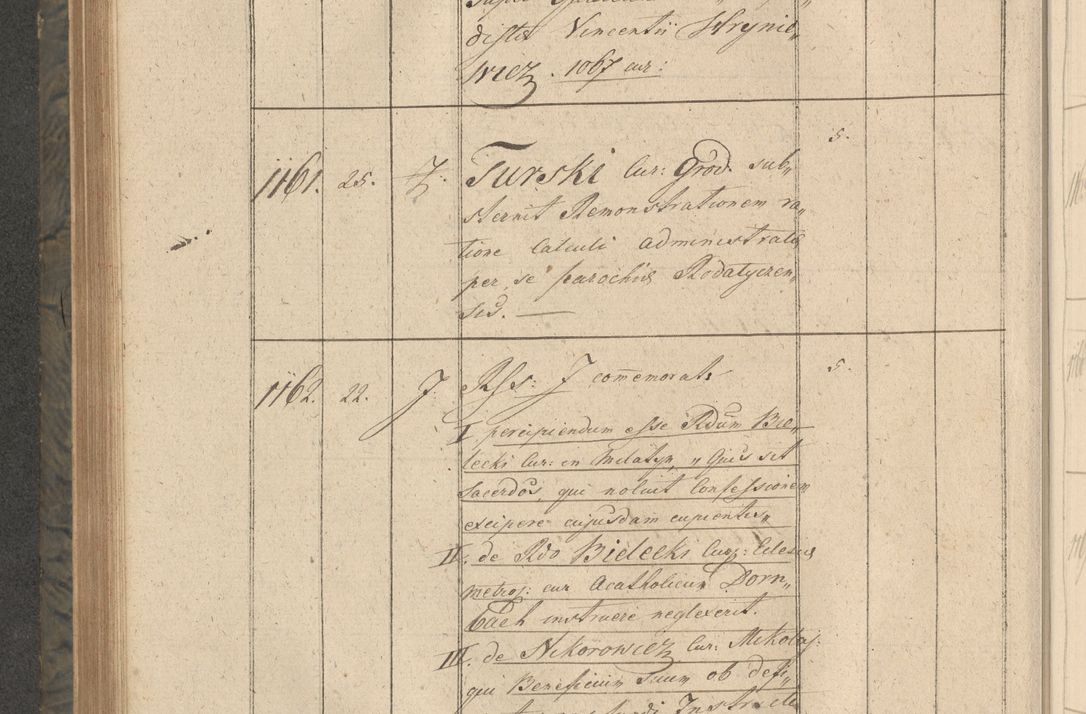 dista Vincentii Skrynie„
wicz. 1067 cur:
1161. 25. Z. Turski Cur: Grod. sub„ 5.
sternit Remonstrationem ra„
tione Calculi administratæ
per se parochiæ Rodatycen„
sis. —
1162. 22. J. Rss: J comemorats 5.
I percipiendum esse Rdum Bie„
lecki Cur: in Milatyn, „ Quis sit
sacerdos, qui noluit Confessionem
excipere cujusdam cupientis„
II. de Rdo Bielecki Cur: Ecclesiæ
metrop: cur Acatholicum Dorn„
bach instruere neglexerit.
III. de Nikorowicz Cur: Mikołaj:
qui Beneficium suum ob defi„